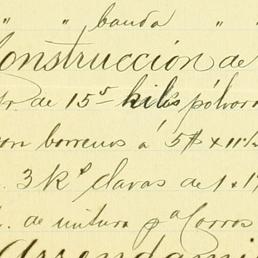 " " banda " "
Construcción de
de 15 kilós pólvora
barrenos á 5 $ x 11½
3 Kº clavos de 1 x 1
de mitura pª Corros
Arrendami